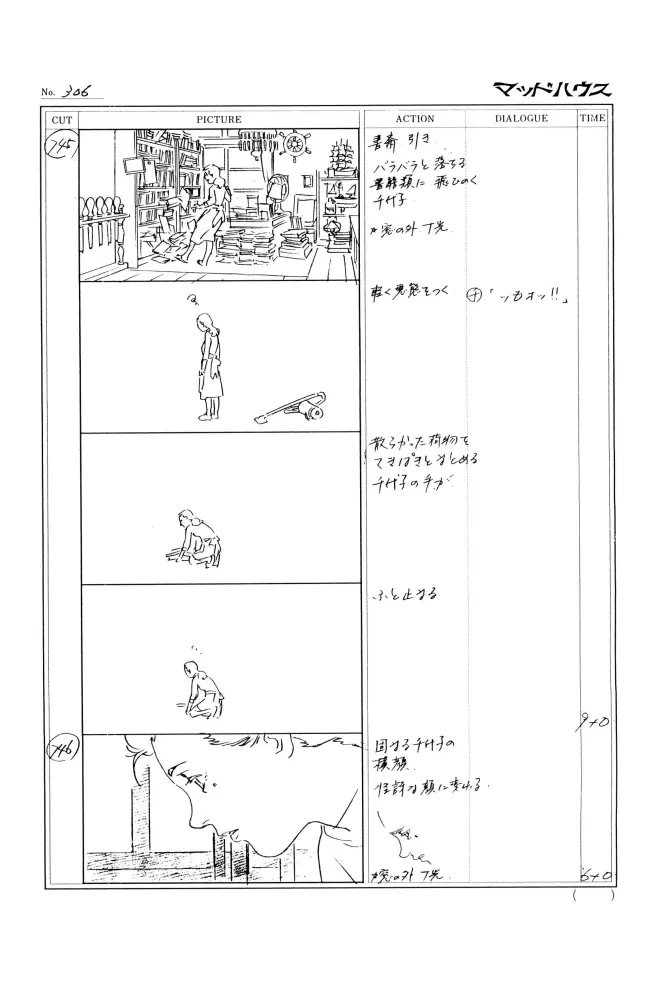 No. 306
マッドハウス
CUT PICTURE ACTION DIALOGUE TIME
745
書斎 引き
バラバラと落ちる
書籍類に 飛びのく
千代子
窓の外 T光
軽く悪態をつく 千「ッもオッ!!」
散らかった荷物を
てきぱきとまとめる
千代子の手が
ふと止まる
9+0
746
固まる千代子の
横顔
怪訝な顔に変わる.
窓の外 T光
6+0
( )